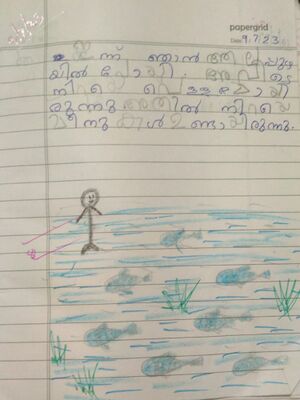 papergrid
Date: 9.7.23
ഇ ന്ന് ഞാൻ ആലപ്പുഴ
യിൽ പോയി. അവിടെ
നിറയെ വെള്ളമായി
രുന്നു അതിൽ നിറയെ
മീനുകൾ ഉണ്ടായിരുന്നു.